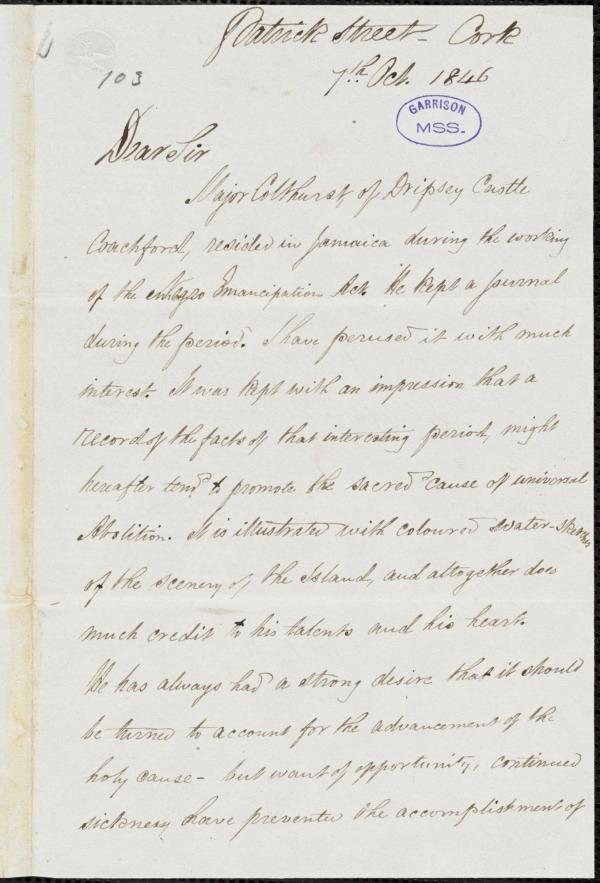 Patrick Street - Cork
7th Oct. 1846
103
GARRISON
MSS.
Dear Sir
Major Colthurst, of Dripsey Castle
Coachford, resided in Jamaica during the working
of the Negro Emancipation Act. He kept a journal
during the period. I have perused it with much
interest. It was kept with an impression that a
record of the facts of that interesting period, might
hereafter tend to promote the sacred cause of universal
Abolition. It is illustrated with coloured water-sketches
of the scenery of, the Island, and altogether does
much credit to his talents and his heart.
He has always had a strong desire that it should
be turned to account for the advancement of the
holy cause - but want of opportunity, continued
sickness, have prevented the accomplishment of